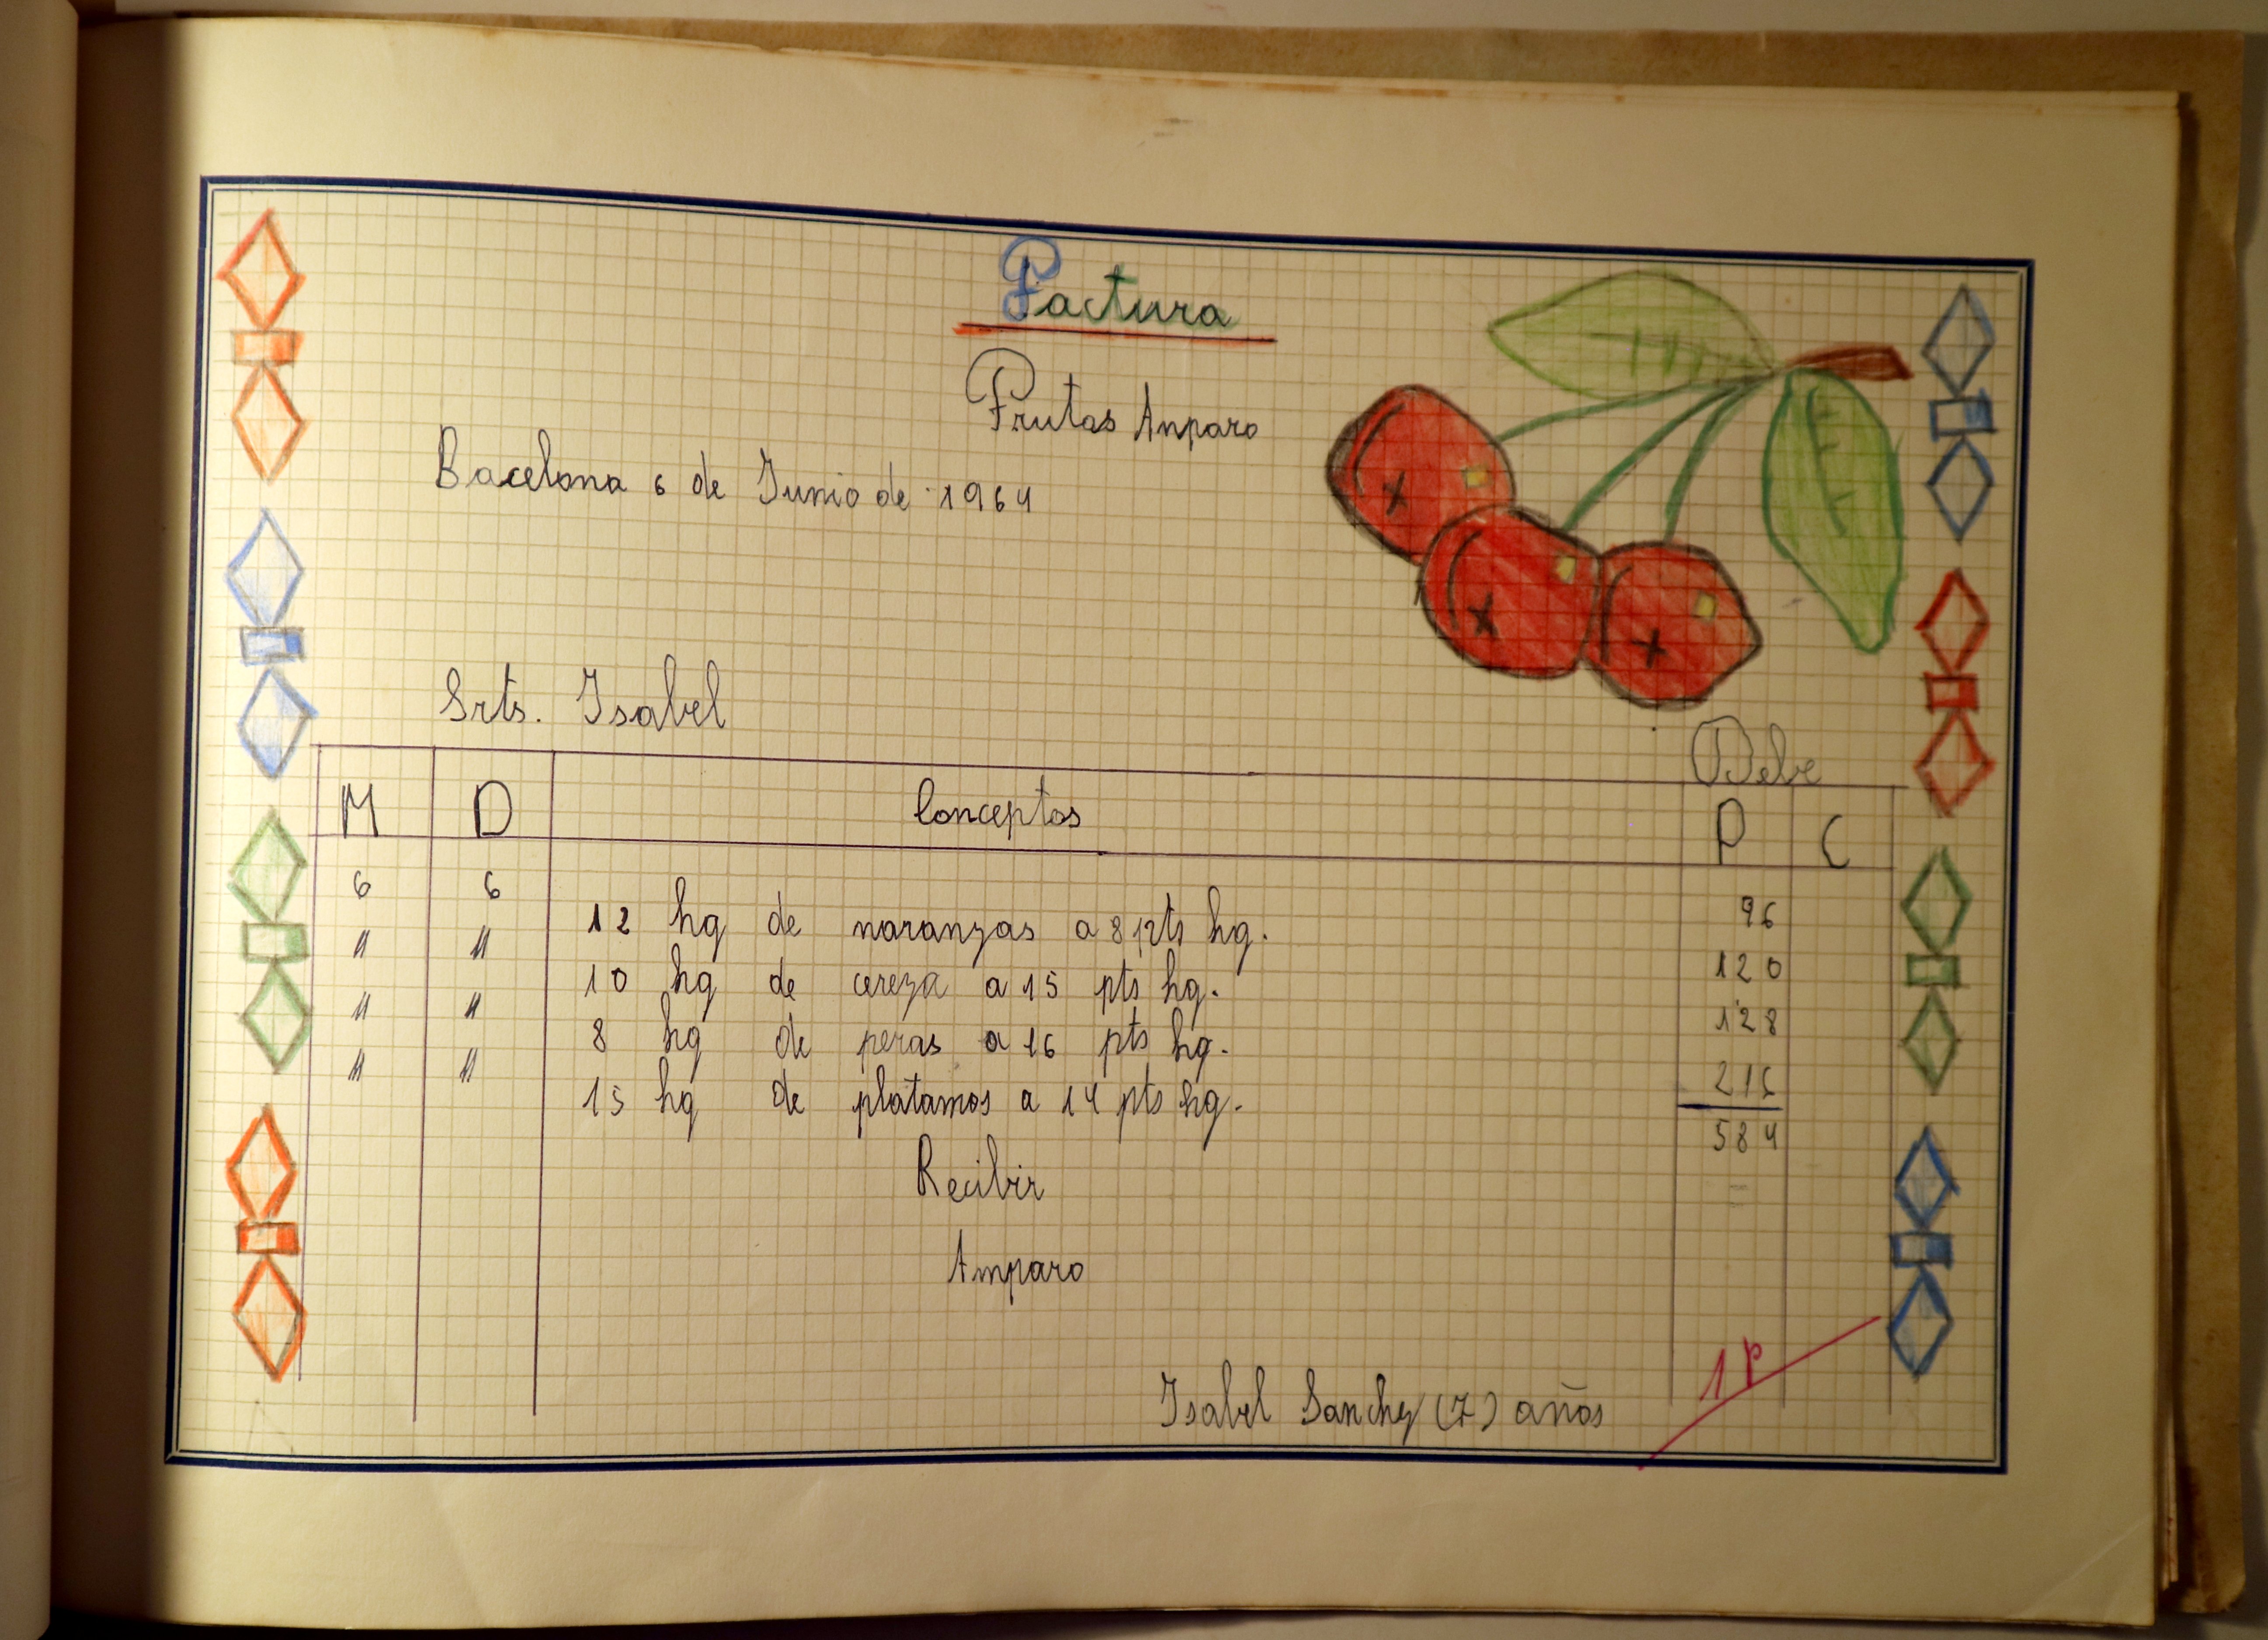 Factura
Frutas Anparo
Bacelona 6 de Junio de 1964
Srts. Isabel
Debe
M D Conceptos P C
6 6 12 hg de naranzas a 8 pts hg. 96
" " 10 hg de cereza a 15 pts hg. 120
" " 8 hg de peras a 16 pts hg. 128
" " 15 hg de platamos a 14 pts hg.
584
Recibir
Amparo
1 P
Isabel Sanchez (7) años